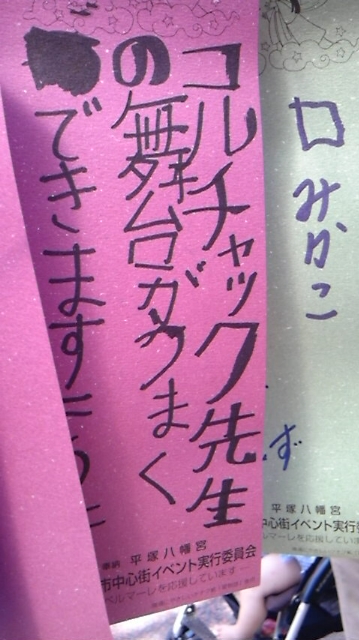 コルチャック先生
の舞台がうまく
できますように
口みかこ
ず
奉納 平塚八幡宮
市中心街イベント実行委員会
ベルマーレを応援しています
平塚八幡宮
中心街イベント実行
マーレを応援してい